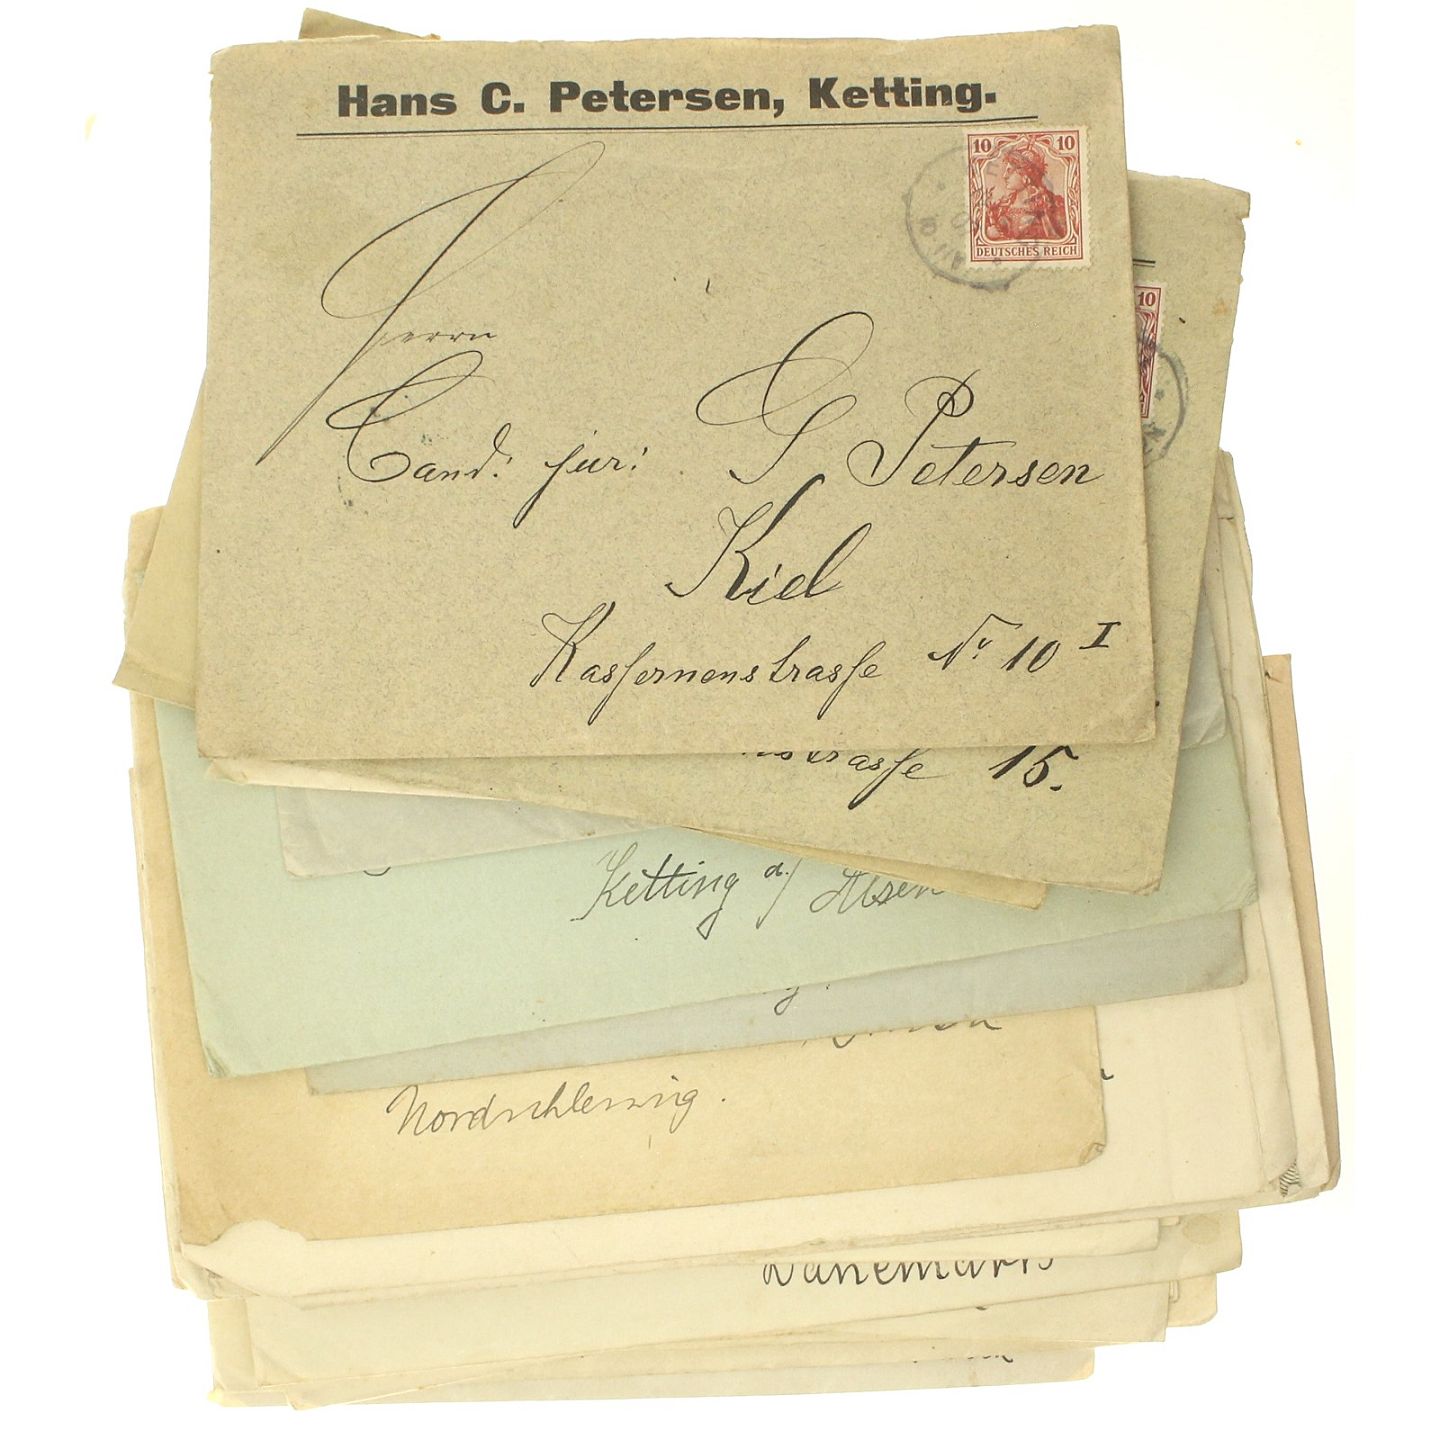 Hans C. Petersen, Ketting.
10 10
DEUTSCHES REICH
Herrn
Cand. jur: G Petersen
Kiel
Kassernenstrasse Nr 10 I
10
strasse 15.
Ketting a/ Alsen
Nordschleswig.
Dänemark